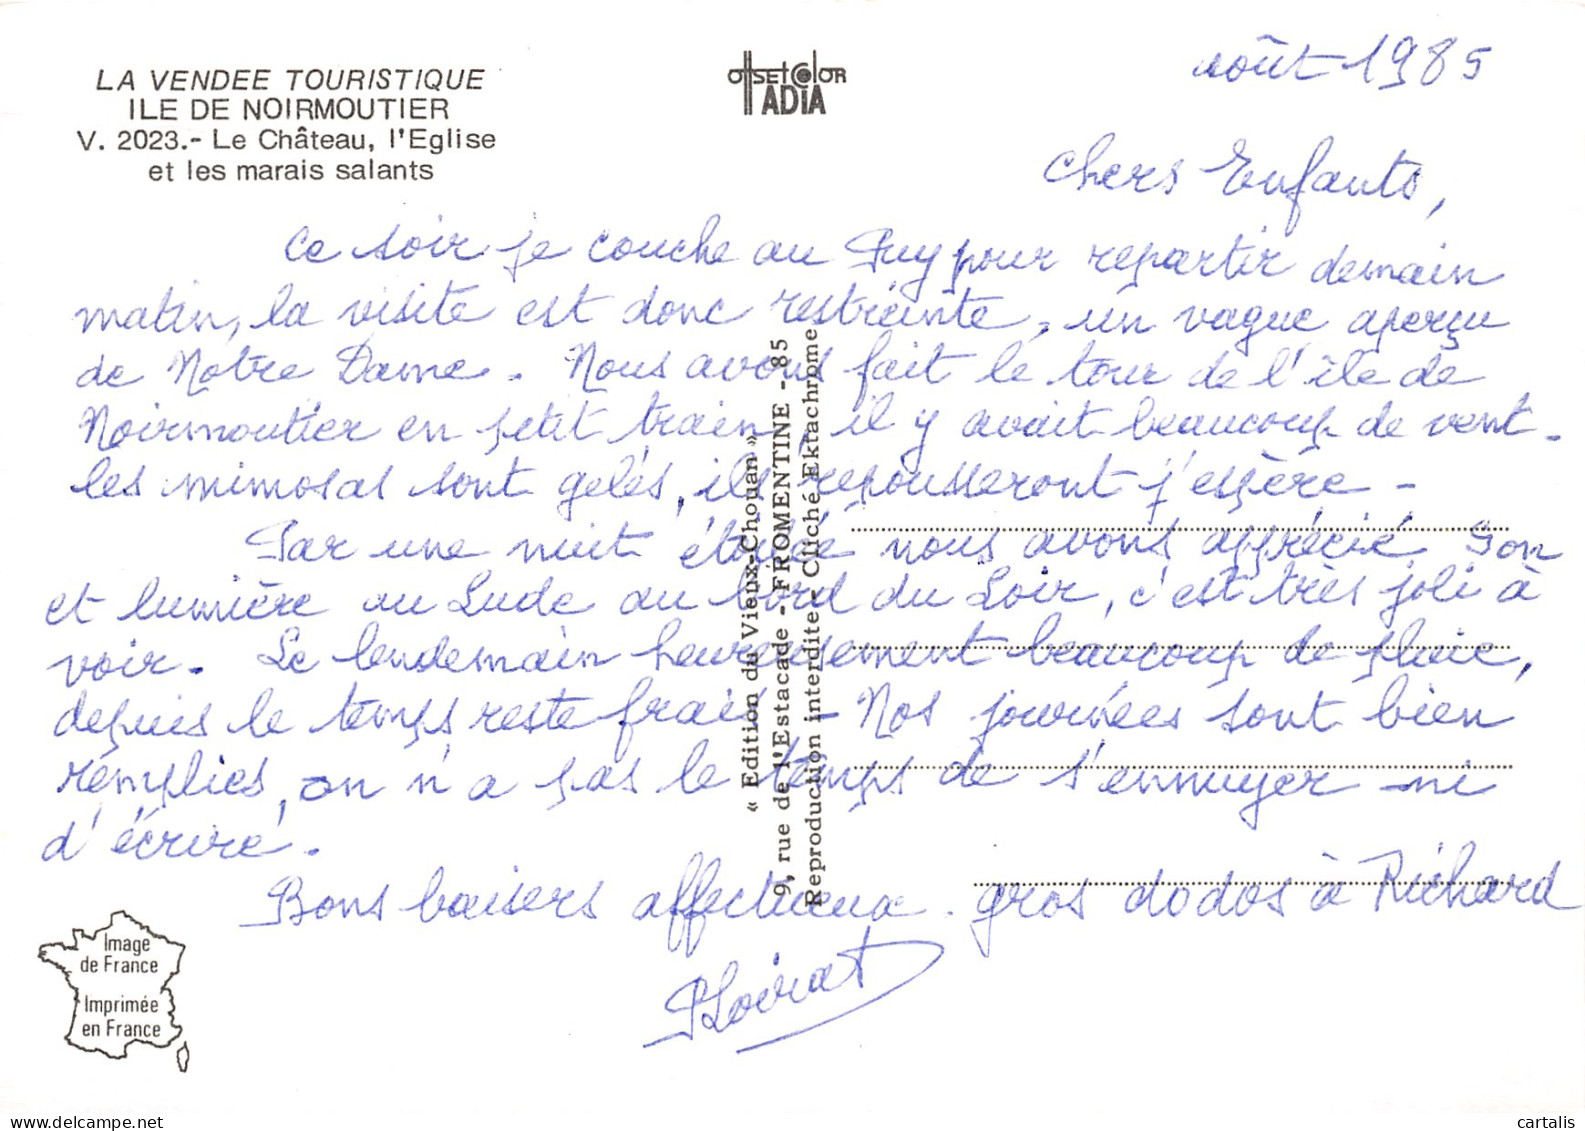 LA VENDEE TOURISTIQUE
ILE DE NOIRMOUTIER
V. 2023.- Le Château, l'Eglise
et les marais salants
OffSEt COlOR
ADIA
août 1985
Chers Enfants,
Ce soir je couche au Puy pour repartir demain
matin, la visite est donc restreinte, un vague aperçu
de Notre Dame. Nous avons fait le tour de l'île de
Noirmoutier en petit train, il y avait beaucoup de vent.
les mimosas sont gelés, ils repousseront j'espère -
Par une nuit étoilée nous avons apprécié Son
et lumière au Lude au bord du Loir, c'est très joli à
voir. Le lendemain heureusement beaucoup de pluie,
depuis le temps reste frais - Nos journées sont bien
remplies, on n'a pas le temps de s'ennuyer ni
d'écrire.
Bons baisers affectueux. gros dodos à Richard
« Edition du Vieux-Chouan »
9, rue de l'Estacade - FROMENTINE - 85
Reproduction interdite - Cliché Ektachrome
Image
de France
Imprimée
en France
www.delcampe.net
cartalis